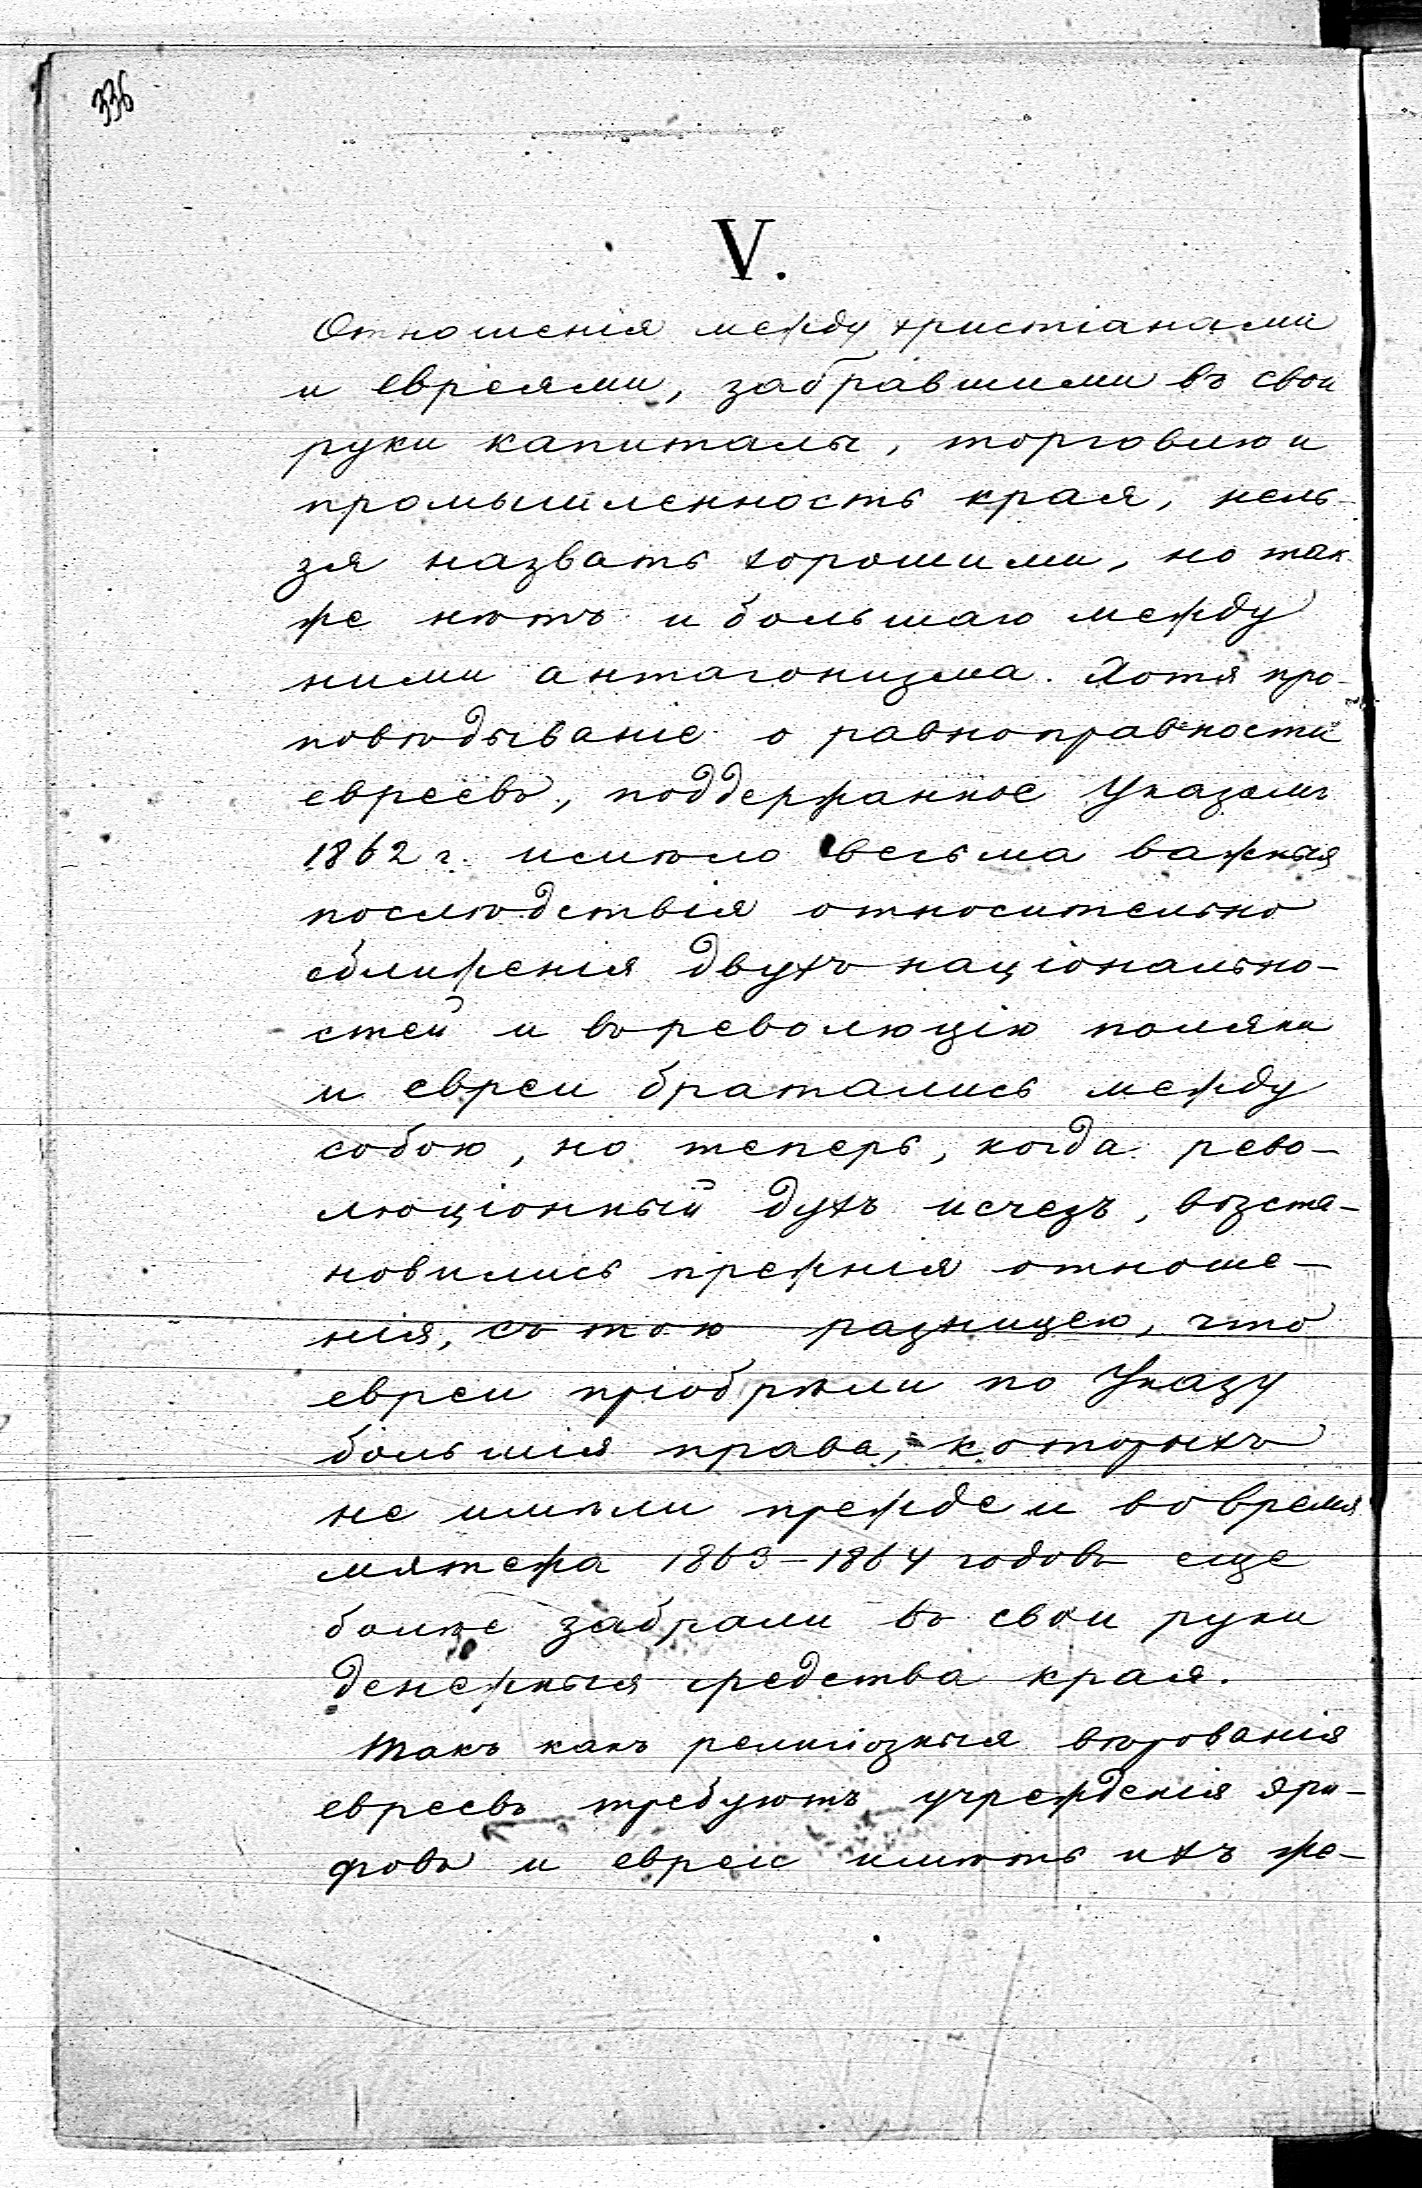 336
V.
Отношенія между христіанами
и евреями, забравшими въ свои
руки капиталы, торговлю и
промышленность края, нель-
зя назвать хорошими, но так-
же нѣтъ и большаго между
ними антагонизма. Хотя про-
повѣдываніе о равноправности
евреевъ, поддержанное Указомъ
1862 г. имѣло весьма важныя
послѣдствія относительно
сближенія двухъ національно-
стей и въ революцію поляки
и евреи братались между
собою, но теперь, когда рево-
люціонный духъ исчезъ, возста-
новились прежнія отноше-
нія, съ тою разницею, что
евреи пріобрѣли по Указу
большія права, которыхъ
не имѣли прежде и во время
мятежа 1863-1864 годовъ еще
болѣе забрали въ свои руки
денежныя средства края.
Такъ какъ религіозныя вѣрованія
евреевъ требуютъ учрежденія эри-
фовъ и евреи имѣть ихъ же-